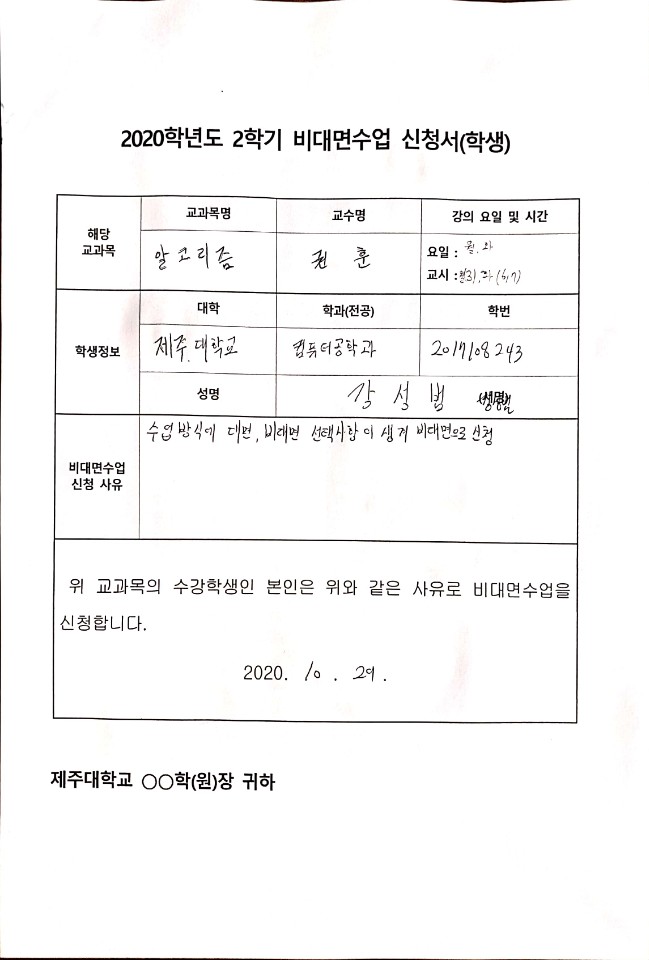 2020학년도 2학기 비대면수업 신청서(학생)
해당 교과목
교과목명 교수명 강의 요일 및 시간
알고리즘 권 훈 요일 : 월, 화
교시 :
학생정보
대학 학과(전공) 학번
제주대학교 컴퓨터공학과 2017108243
성명 강 석 범
비대면수업 신청 사유
수업방식에 대면, 비대면 선택사항이 생겨 비대면으로 신청
위 교과목의 수강학생인 본인은 위와 같은 사유로 비대면수업을
신청합니다.
2020. 10. 29.
제주대학교 ○○학(원)장 귀하